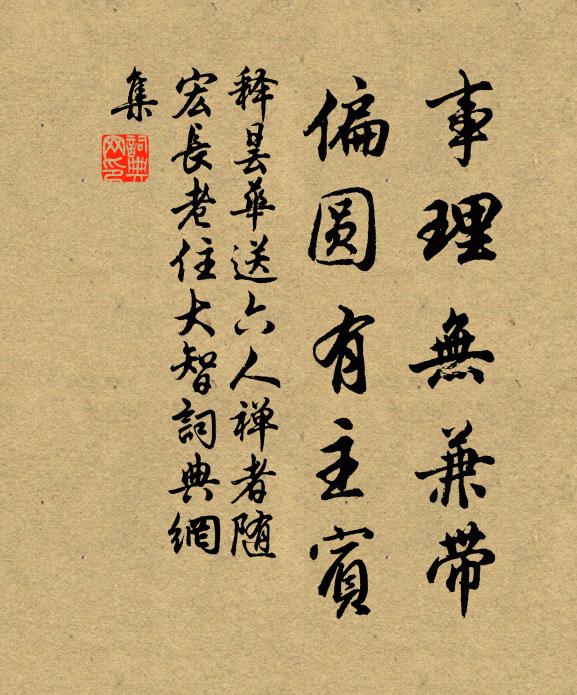 事理無兼帶
偏圆有主賓
释曇華送六人禅者随
宏長老住大智詞典網
集
詞典
网印